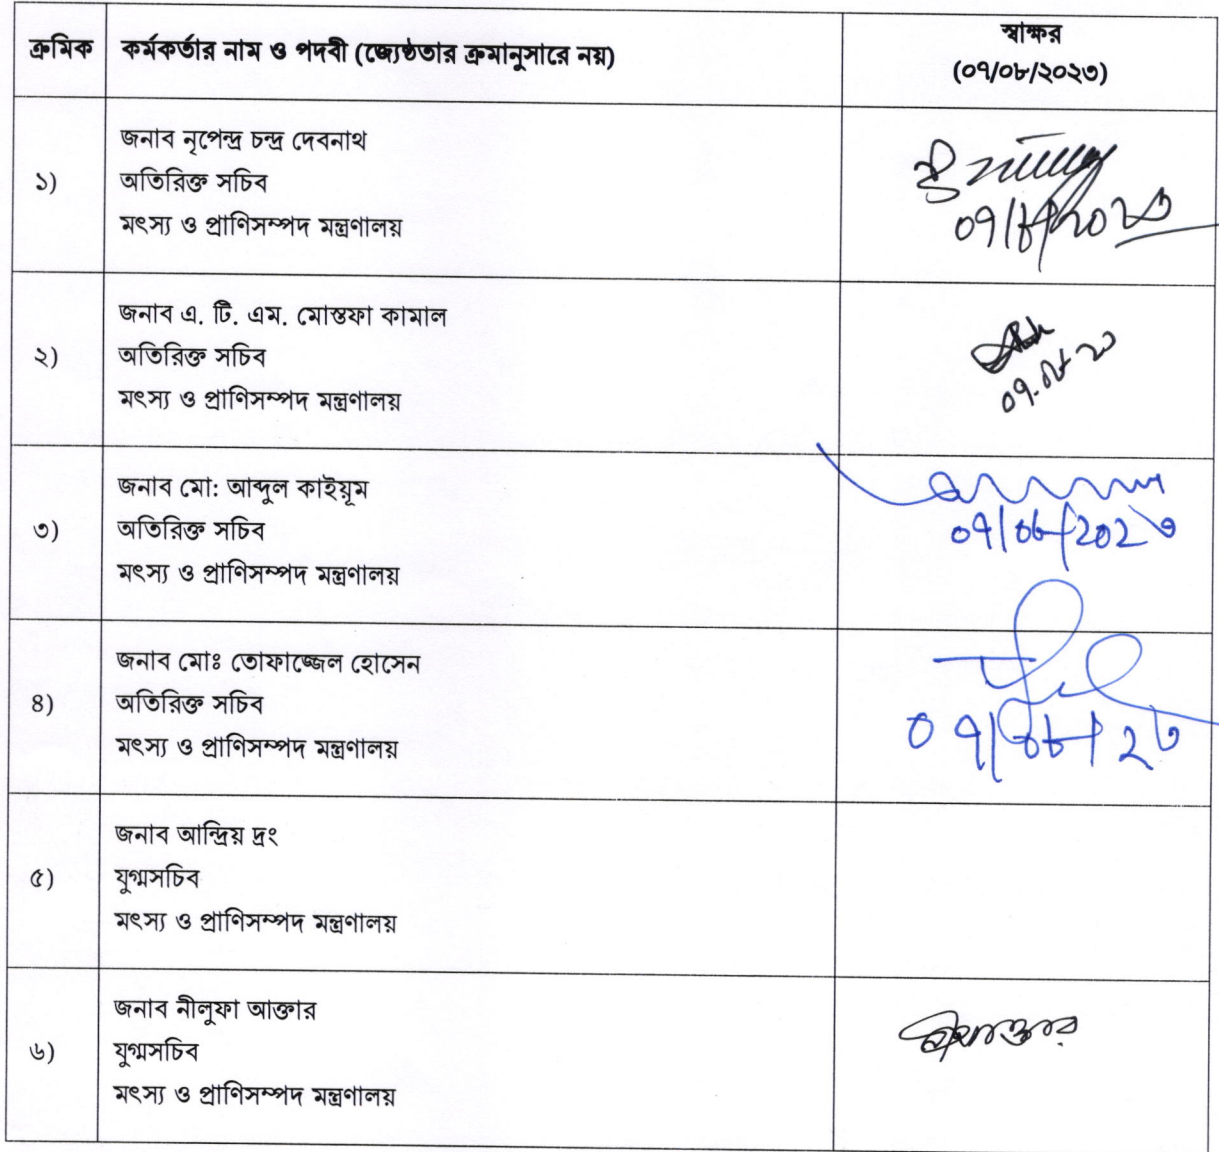 ক্রমিক
কর্মকর্তার নাম ও পদবী (জ্যেষ্ঠতার ক্রমানুসারে নয়)
স্বাক্ষর
(০৭/০৮/২০২৩)
১)
জনাব নৃপেন্দ্র চন্দ্র দেবনাথ
অতিরিক্ত সচিব
মৎস্য ও প্রাণিসম্পদ মন্ত্রণালয়
০৭/৮/২০২৩
২)
জনাব এ. টি. এম. মোস্তফা কামাল
অতিরিক্ত সচিব
মৎস্য ও প্রাণিসম্পদ মন্ত্রণালয়
০৭.০৮.২৩
৩)
জনাব মো: আব্দুল কাইয়ূম
অতিরিক্ত সচিব
মৎস্য ও প্রাণিসম্পদ মন্ত্রণালয়
০৭/০৮/২০২৩
৪)
জনাব মোঃ তোফাজ্জেল হোসেন
অতিরিক্ত সচিব
মৎস্য ও প্রাণিসম্পদ মন্ত্রণালয়
০৭/০৮/২৩
৫)
জনাব আন্দ্রিয় দ্রং
যুগ্মসচিব
মৎস্য ও প্রাণিসম্পদ মন্ত্রণালয়
৬)
জনাব নীলুফা আক্তার
যুগ্মসচিব
মৎস্য ও প্রাণিসম্পদ মন্ত্রণালয়